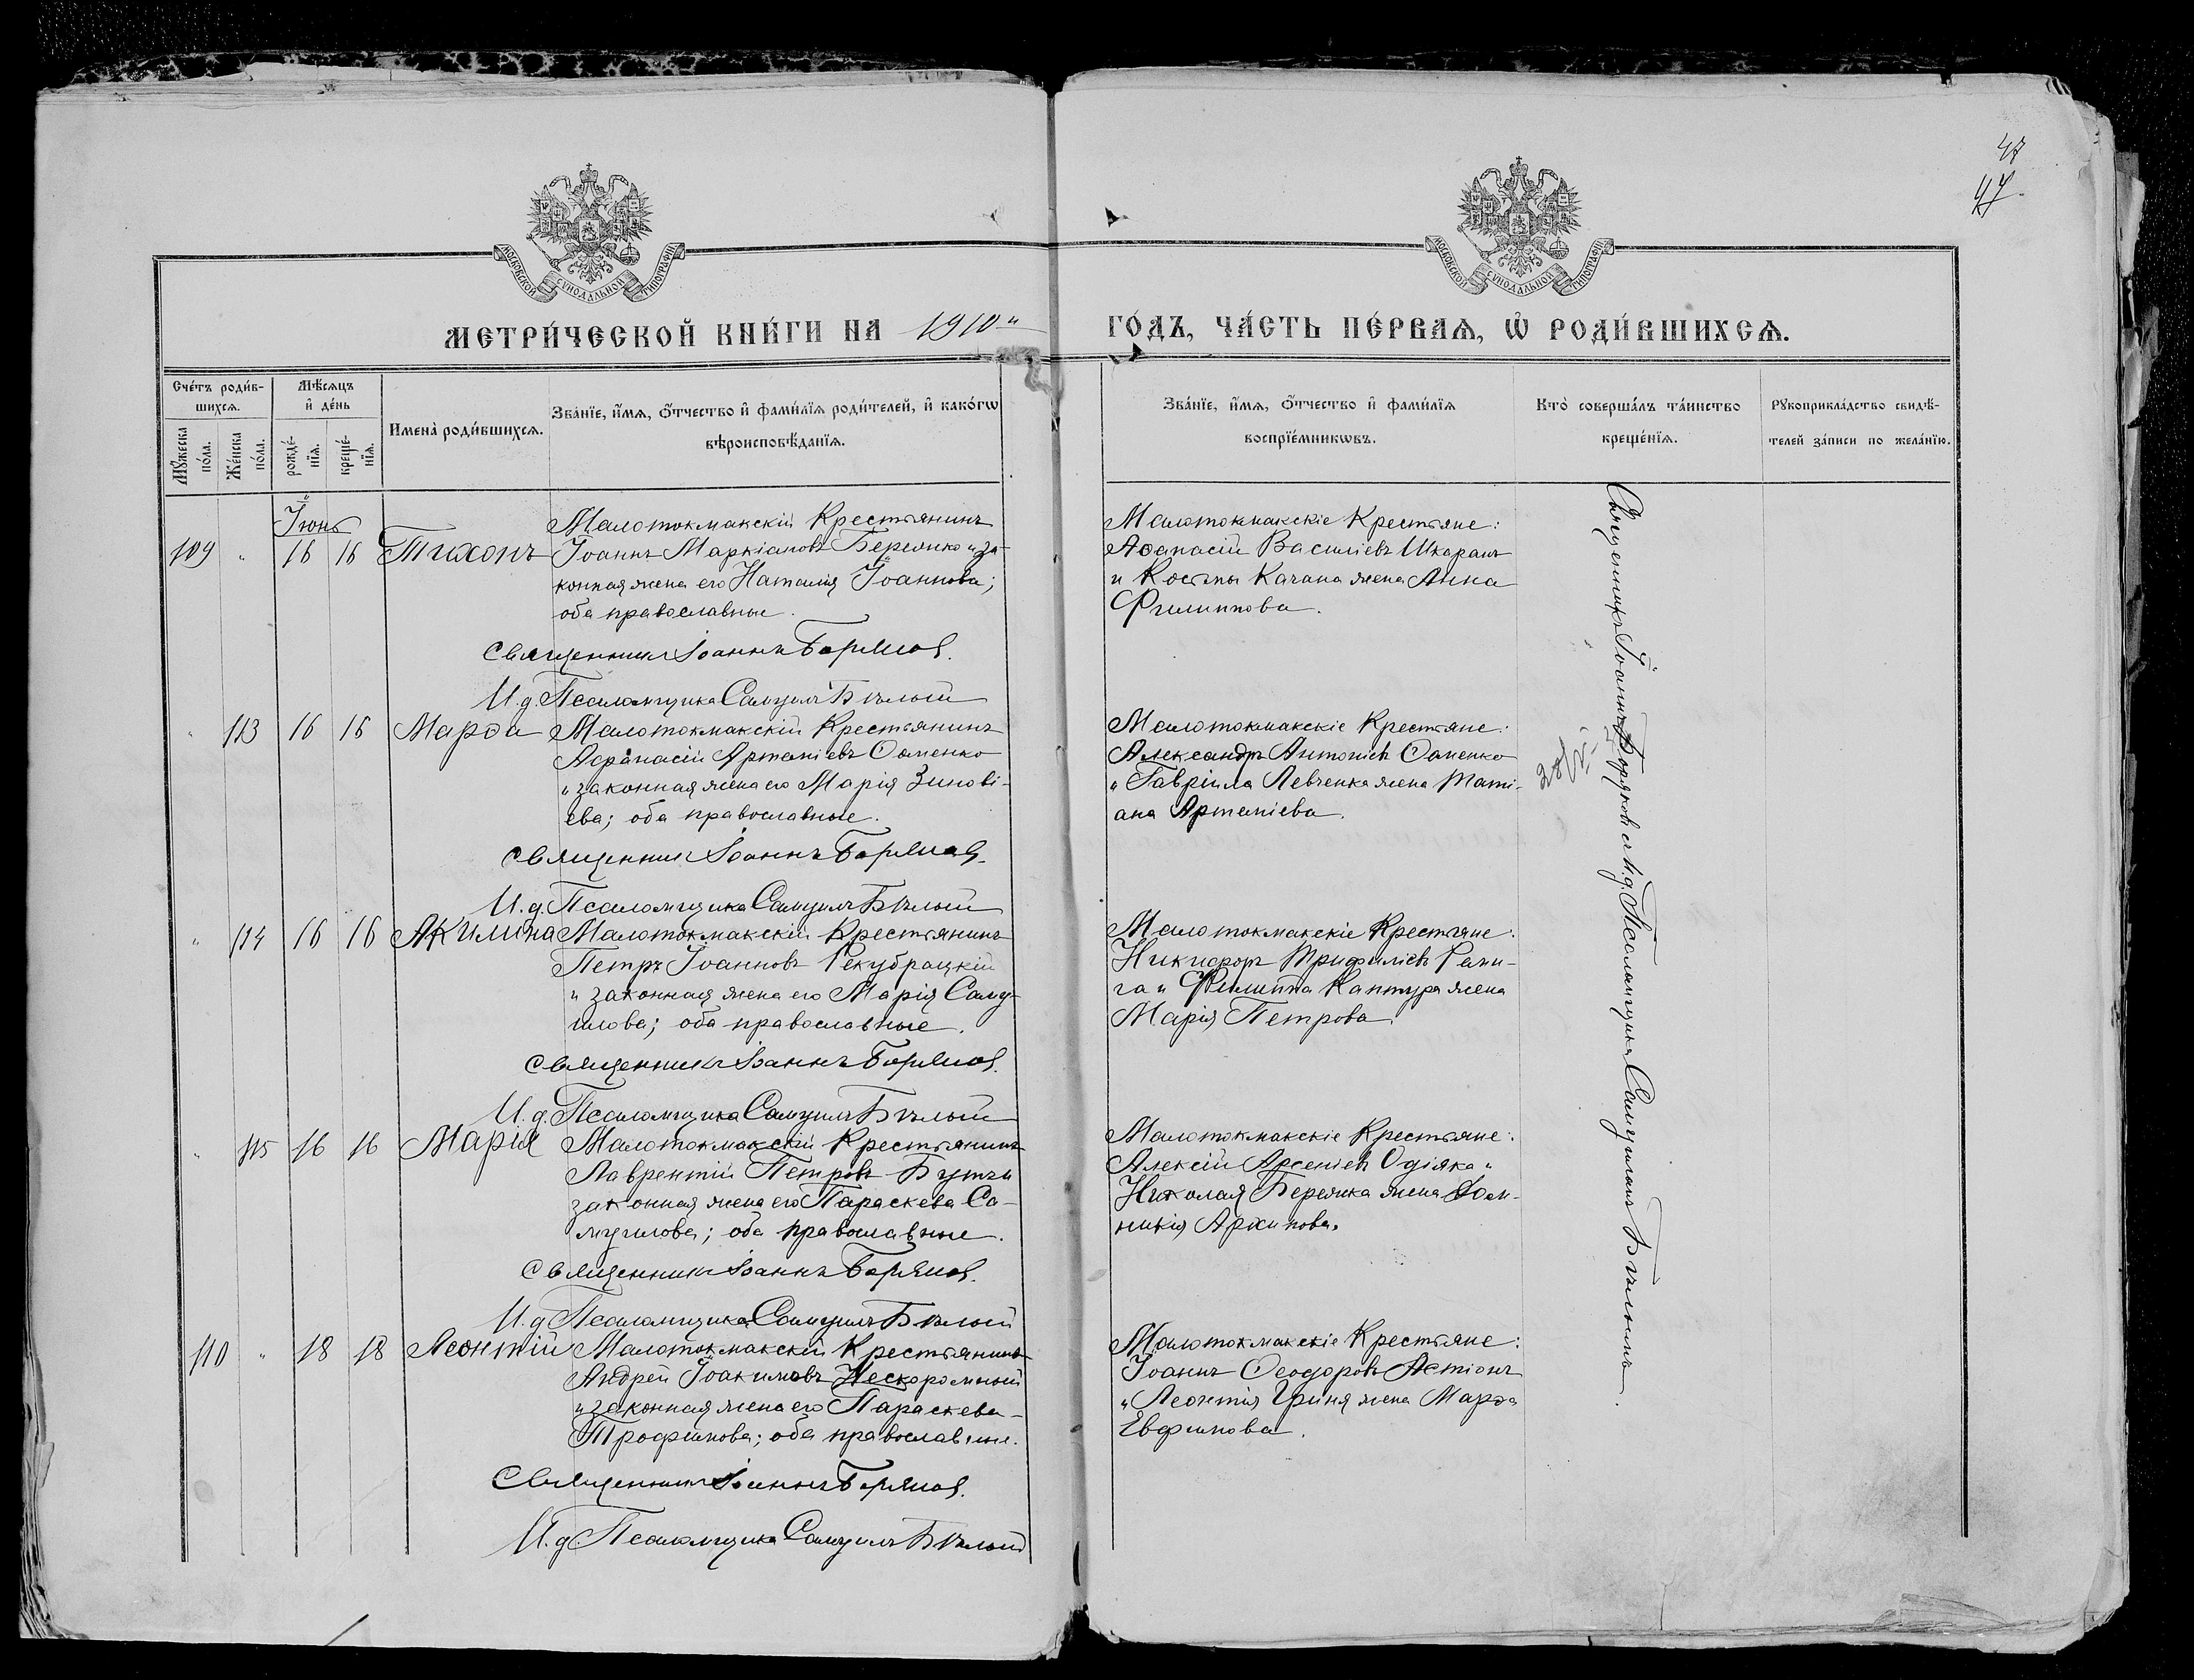 47
47.
МОСКОВСКОЙ СѴНОДАЛЬНОЙ ТИПОГРАФІИ
МОСКОВСКОЙ СѴНОДАЛЬНОЙ ТИПОГРАФІИ
МЕТРИ́ЧЕСКОЙ КНИ́ГИ НА 1910 ГО́ДЪ, ЧА́СТЬ ПЕ́РВАѦ, Ѽ РОДИ́ВШИХСѦ.
Сче́тъ роди́в-
шихсѧ.
Мѣ́сѧцъ
и҆ де́нь
Мꙋ́жеска по́ла.
Же́нска по́ла.
рожде́-
нїѧ.
креще́-
нїѧ.
Имена̀ роди́вшихсѧ.
Зва́нїе, и҆́мѧ, ѻ҆́тчество и҆ фами́лїѧ роди́телей, и҆ како́гѡ
вѣроисповѣ́данїѧ.
Зва́нїе, и҆́мѧ, ѻ҆́тчество и҆ фами́лїѧ
воспрїе́мникѡвъ.
Кто̀ соверша́лъ та́инство
креще́нїѧ.
Рꙋкоприкла́дство свидѣ́-
телей за́писи по жела́нїю.
Іюнь
109 " 16 16 Тихонъ
Малотокмакскій Крестьянинъ
Іоаннъ Маркіановъ Береянко и за-
конная жена его Наталія Іоаннова;
оба православные.
Священникъ Іоаннъ
И. д. Псаломщика Самуилъ Бѣлый
Малотокмакскіе Крестьяне:
Аѳанасій Василіевъ Шкаранъ
и Космы Качана жена Анна
Филиппова.
" 113 16 16 Марѳа
Малотокмакскій Крестьянинъ
Аѳанасій Артеміевъ Саненко
и законная жена его Марія Зинові-
ева; оба православные.
Священникъ Іоаннъ
И. д. Псаломщика Самуилъ Бѣлый
Малотокмакскіе Крестьяне:
Александръ Антоніевъ Саненко
и Гавріила Левченка жена Таті-
ана Артеміева.
" 114 16 16 Акилина
Малотокмакскій Крестьянинъ
Петръ Іоанновъ
и законная жена его Марія Саму-
илова; оба православные.
Священникъ Іоаннъ
И. д. Псаломщика Самуилъ Бѣлый
Малотокмакскіе Крестьяне:
Никифоръ Трифиліевъ
и Филиппа Каптура жена
Марія Петрова.
" 115 16 16 Марія
Малотокмакскій Крестьянинъ
Лаврентій Петровъ
законная жена его Параскева Са-
муилова; оба православные.
Священникъ Іоаннъ
И. д. Псаломщика Самуилъ Бѣлый
Малотокмакскіе Крестьяне:
Алексій Арсеніевъ Одіяка и
Николая Береянка жена Дом-
никія Архипова.
110 " 18 18 Леонтій
Малотокмакскій Крестьянинъ
Андрей Іоакимовъ Нескоромный
и законная жена его Параскева
Трофимова; оба православные.
Священникъ Іоаннъ
И. д. Псаломщика Самуилъ Бѣлый
Малотокмакскіе Крестьяне:
Іоаннъ Ѳеодоровъ
и Леонтія Гриня жена Марѳа
Евфимова.
Священникъ Іоаннъ съ И. д. Псаломщика Самуиломъ Бѣлымъ.